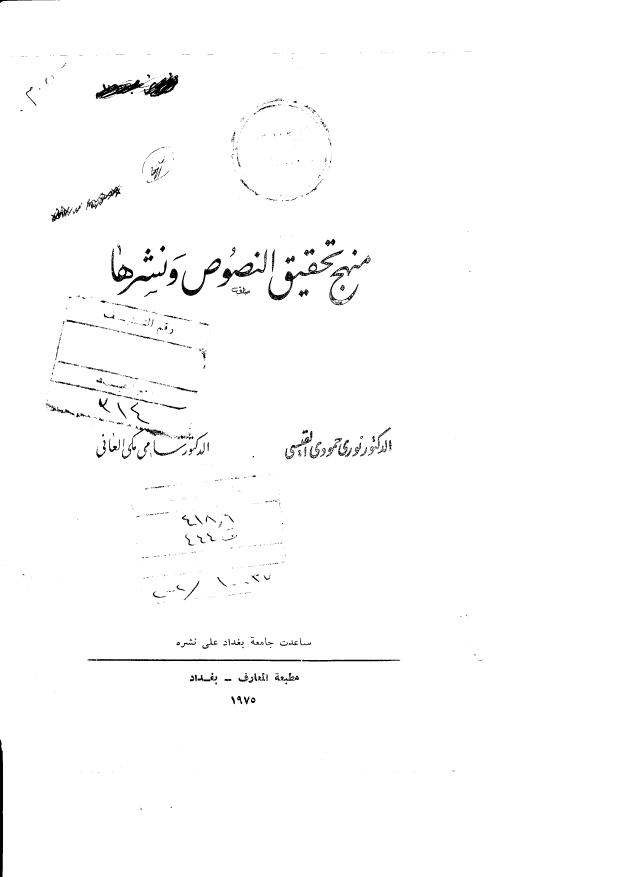 منهج تحقيق النصوص ونشرها
رقم
٣١٤
الدكتور نوري حمودي القيسي
الدكتور سامي مكي العاني
٤١٨,٦
٤٤٤
ساعدت جامعة بغداد على نشره
مطبعة المعارف – بغداد
١٩٧٥